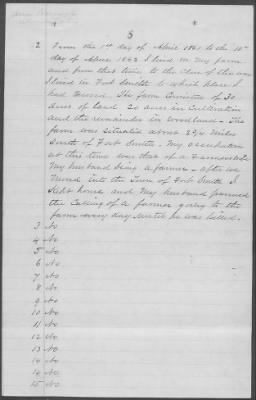 3
2 From the 1st day of April 1861 to the 10th
day of April 1863 I lived on My farm
and from that time to the Close of the war
I lived in Fort Smith to which place I
had Moved. The farm Consisted of 30
acres of land 20 acres in Cultivation
and the remainder in woodland. The
farm was situated about 2 1/2 Miles
South of Fort Smith. My occupation
at this time was that of a Farmers wife
My husband being a farmer. after we
Moved into the Town of Fort Smith I
Kept house and My husband pursued
the Calling of a farmer going to the
farm every day until he was killed.
3 No
4 No
5 No
6 No
7 No
8 No
9 No
10 No
11 No
12 No
13 No
14 No
14 No
15 No